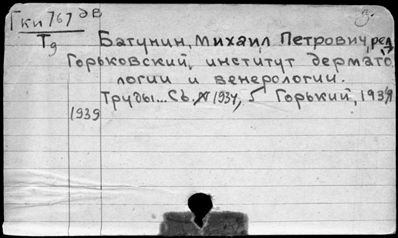 Гки 767 эв
Тд Батунин, Михаил Петрович, ред.
Горьковский институт дермато
логии и венерологии.
Труды... Сб. 1937, 5 Горький, 1937,
1939